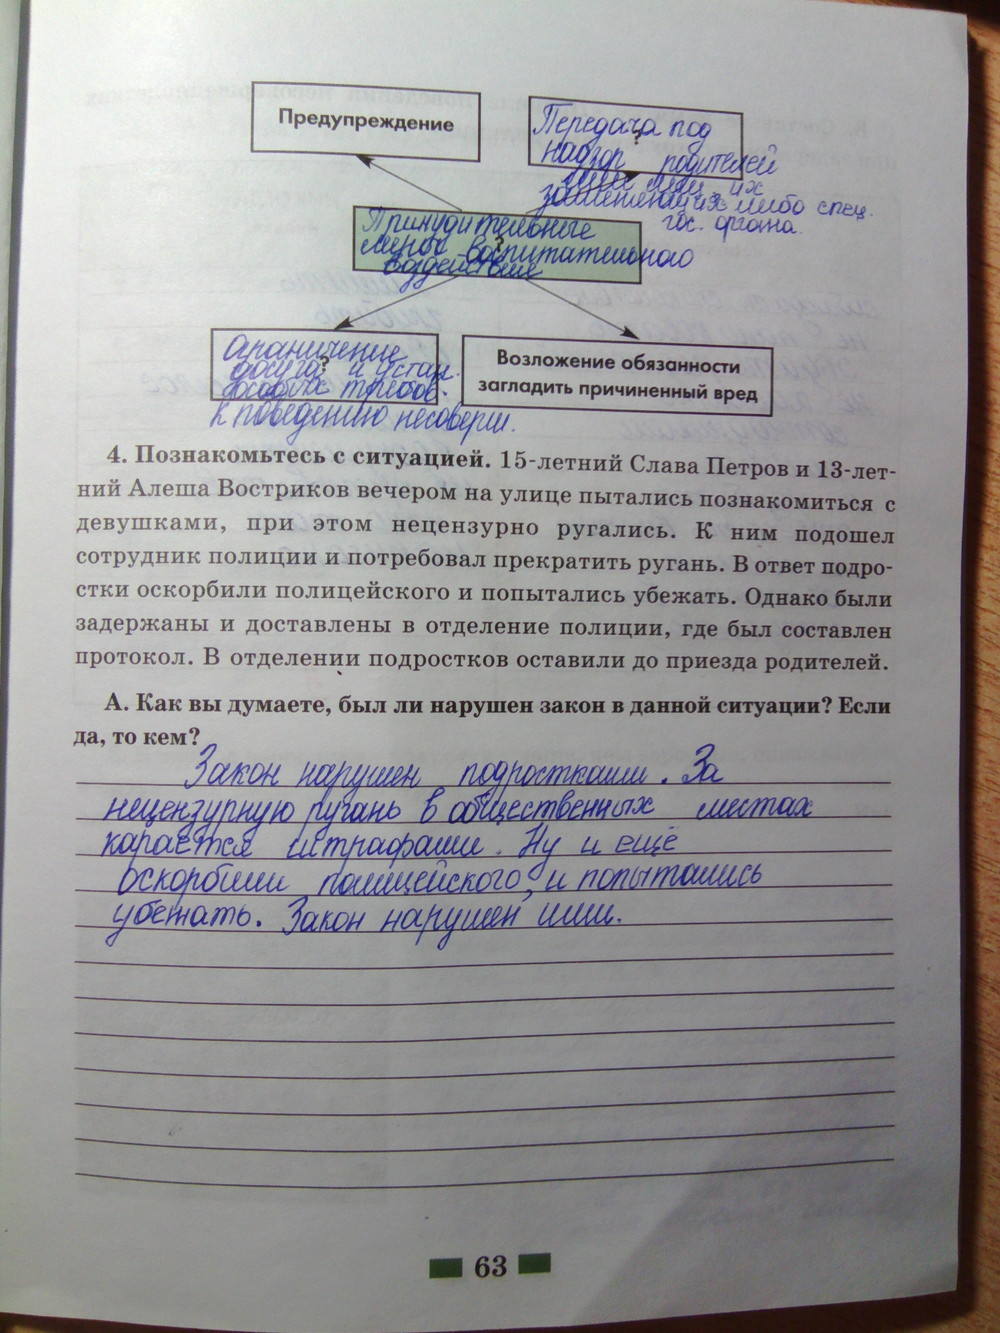 Предупреждение
Передача под
надзор родителей
или лиц, их
заменяющих либо спец.
гос. органа.
Принудительные
меры воспитательного
воздействие
?
Ограничение
досуга и устан.
особых требов.
к поведению несоверш.
?
Возложение обязанности
загладить причиненный вред
4. Познакомьтесь с ситуацией. 15-летний Слава Петров и 13-лет-
ний Алеша Востриков вечером на улице пытались познакомиться с
девушками, при этом нецензурно ругались. К ним подошел
сотрудник полиции и потребовал прекратить ругань. В ответ подро-
стки оскорбили полицейского и попытались убежать. Однако были
задержаны и доставлены в отделение полиции, где был составлен
протокол. В отделении подростков оставили до приезда родителей.
А. Как вы думаете, был ли нарушен закон в данной ситуации? Если
да, то кем?
Закон нарушен подростками. За
нецензурную ругань в общественных местах
карается штрафами. Ну и ещё
оскорбили полицейского, и попытались
убежать. Закон нарушен ими.
63